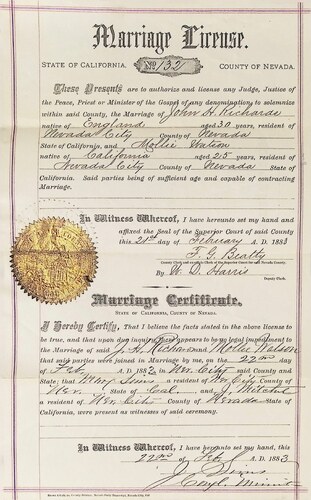 Marriage License.
STATE OF CALIFORNIA. No 132 COUNTY OF NEVADA.
These Presents are to authorize and license any Judge, Justice of
the Peace, Priest or Minister of the Gospel of any denomination to solemnize
within said County, the Marriage of John H. Richards
native of England aged 30 years, resident of
Nevada City County of Nevada
State of California, and Mollie Watson
native of California aged 25 years, resident of
Nevada City County of Nevada State of
California. Said parties being of sufficient age and capable of contracting
Marriage.
In Witness Whereof, I have hereunto set my hand and
affixed the Seal of the Superior Court of said County
this 21st day of February A. D. 1883
F. G. Beatty
County Clerk and ex-officio Clerk of the Superior Court for said Nevada County.
By W. D. Harris
Deputy Clerk.
Marriage Certificate.
STATE OF CALIFORNIA, COUNTY OF NEVADA.
I Hereby Certify, That I believe the facts stated in the above license to
be true, and that upon due inquiry there appears to be no legal impediment to
the Marriage of said J. H. Richards and Mollie Watson
that said parties were joined in Marriage by me, on the 22nd day of
Feb. A. D. 1883, in Nev. City said County and
State; that Mary Sims a resident of Nev. City County of
Nev. State of Cal. and J. Mitchel
a resident of Nev. City County of Nevada State of
Cal. were present as witnesses of said ceremony.
In Witness Whereof, I have hereunto set my hand, this
22nd day of Feb. A. D. 1883
J. Sims